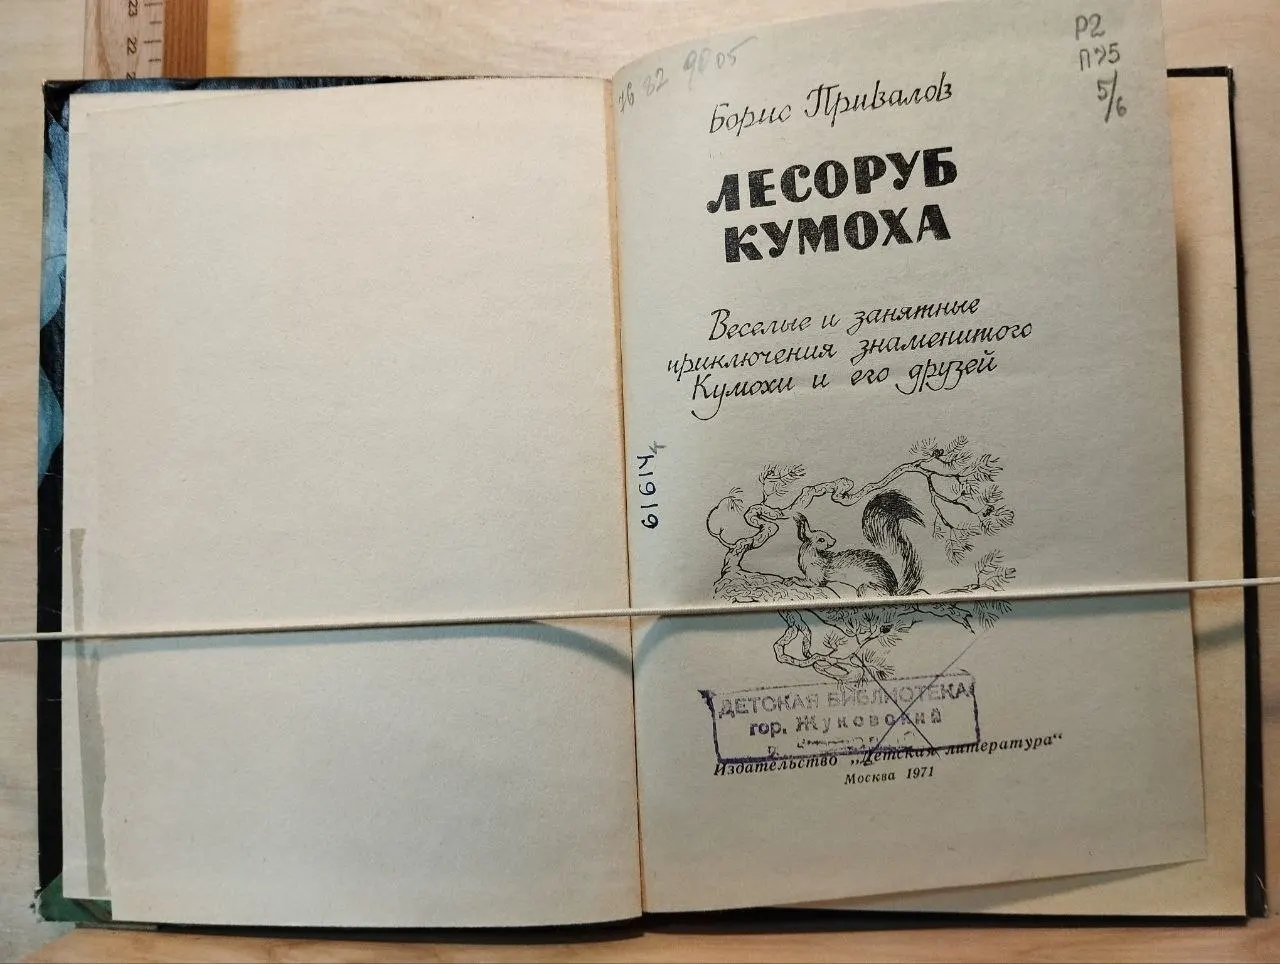 23
22
76 82 9005
Р2
П75
5/6
Борис Привалов
ЛЕСОРУБ
КУМОХА
Веселые и занятные
приключения знаменитого
Кумохи и его друзей
61614
ДЕТСКАЯ БИБЛИОТЕКА
гор. Жуковский
Издательство „Детская литература“
Москва 1971